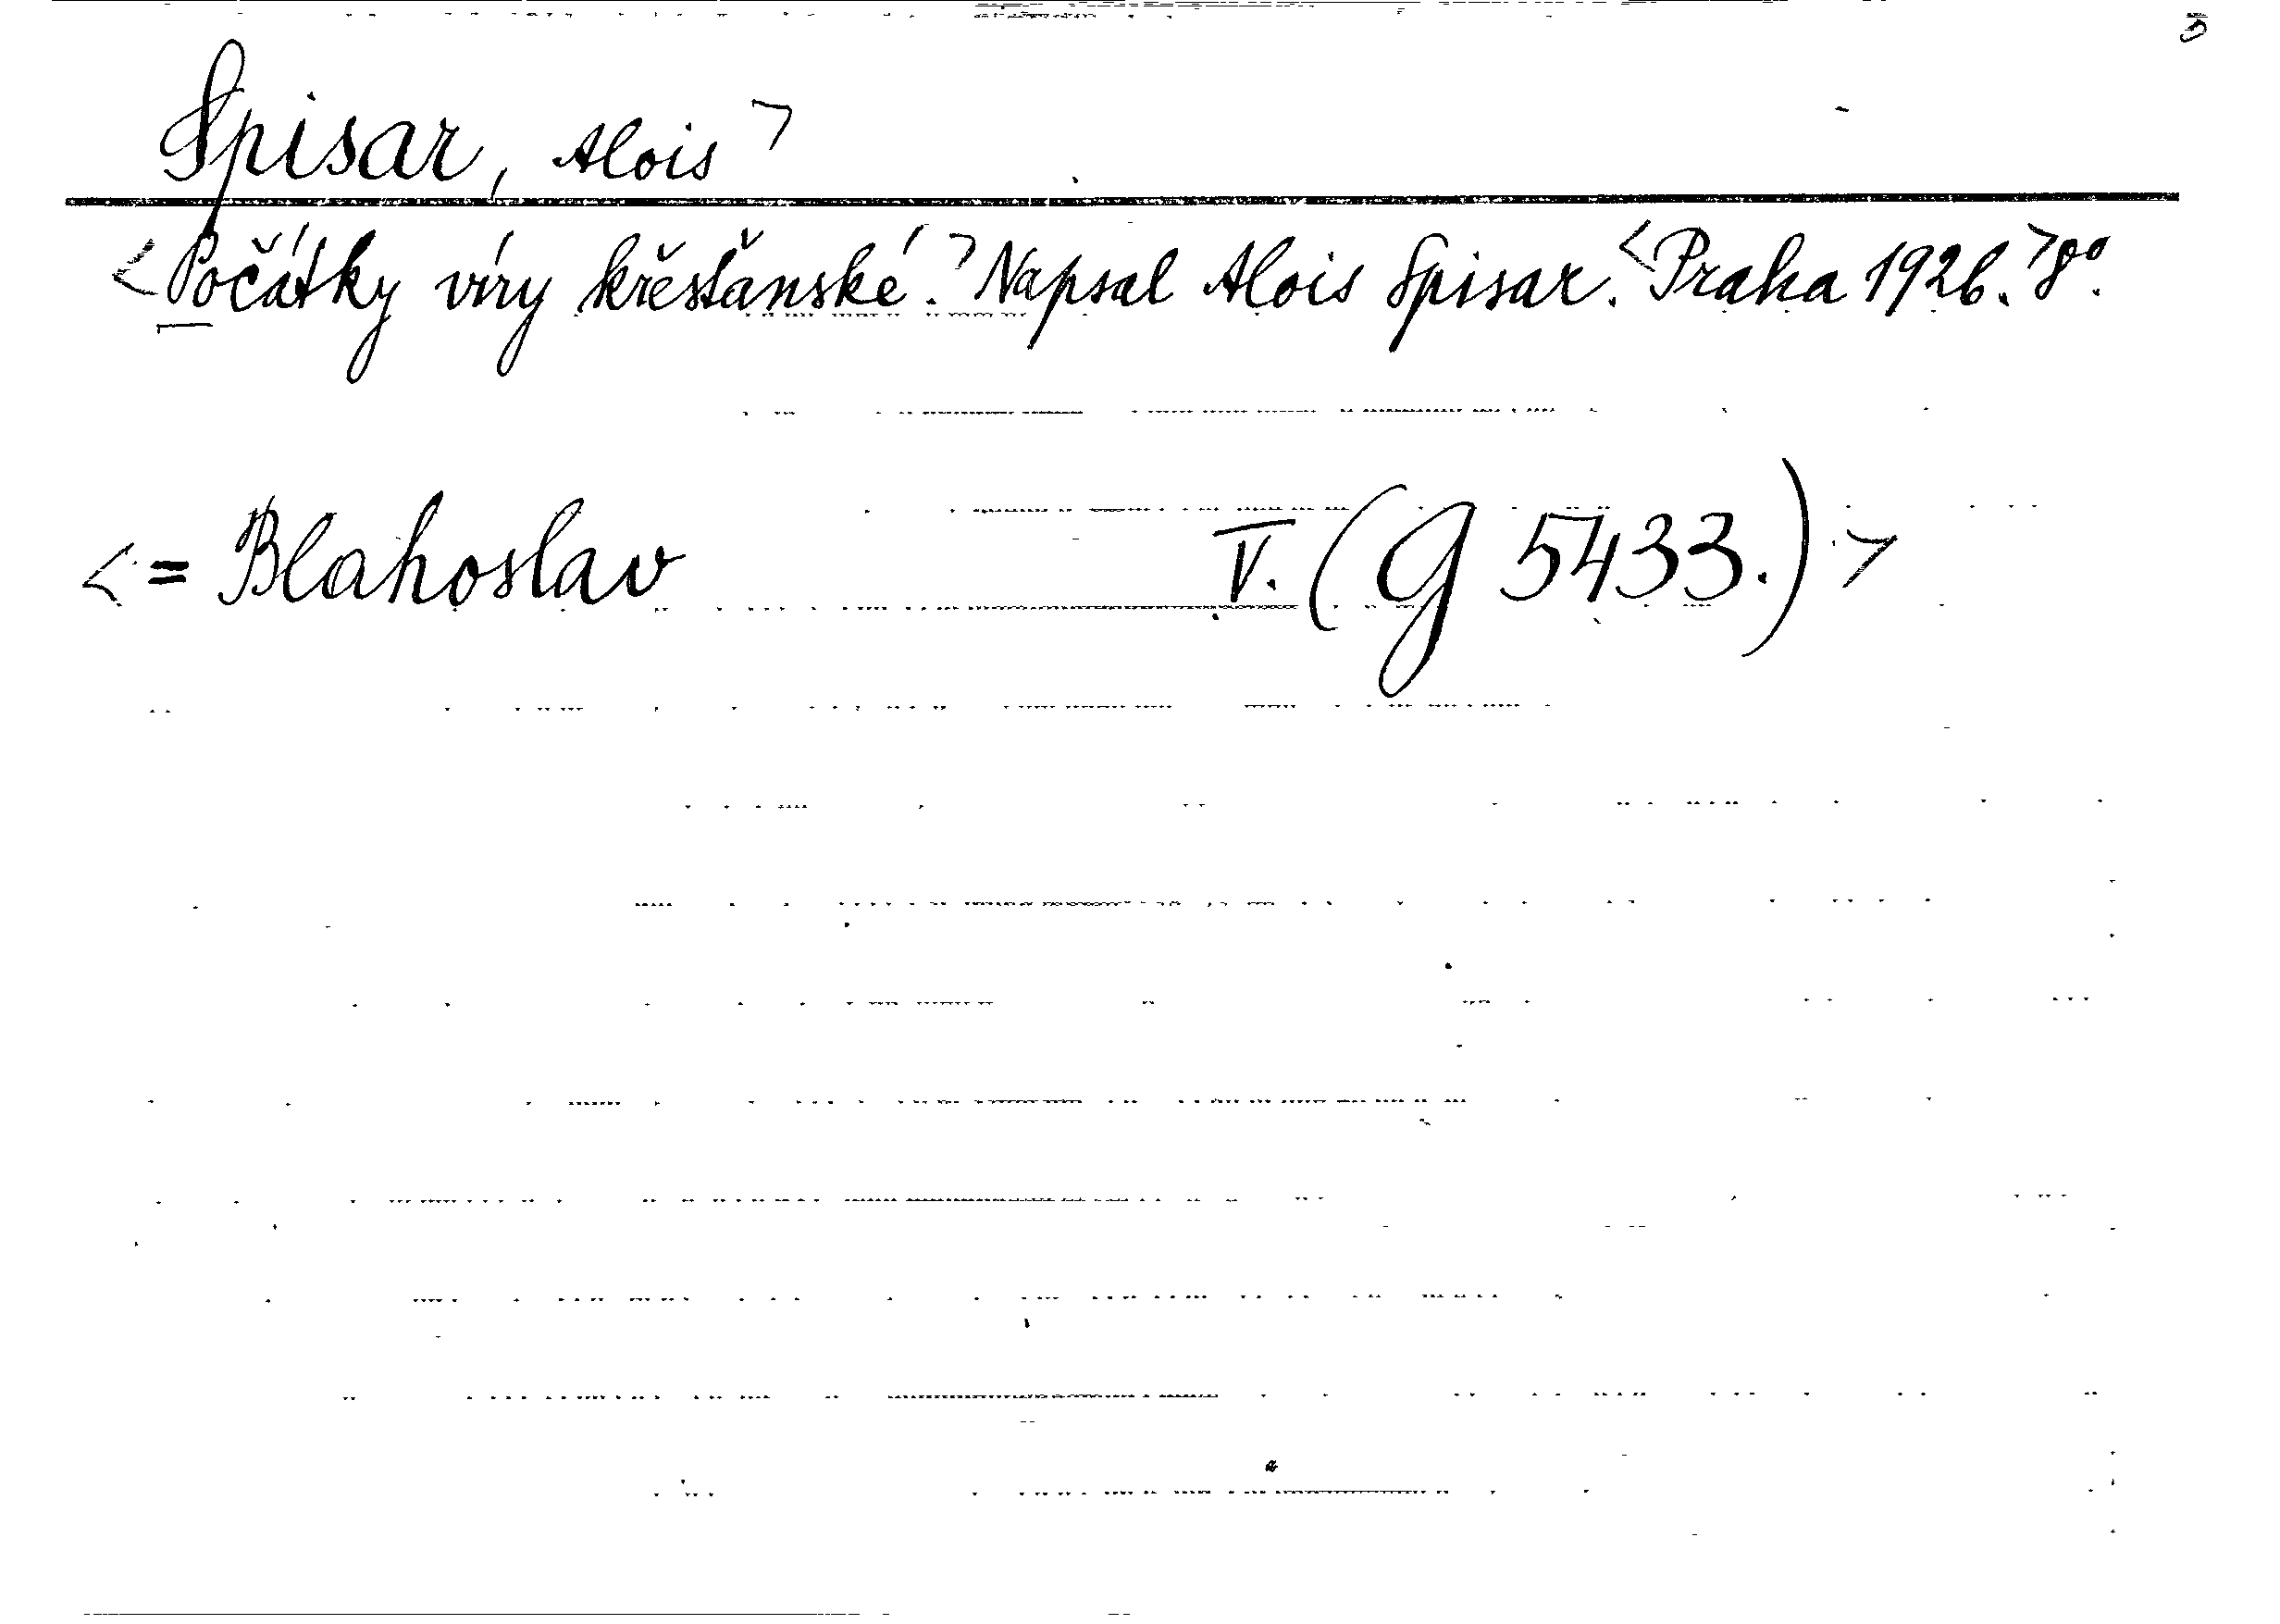 Spisar, Alois >
<Počátky víry křesťanské.> Napsal Alois Spisar. <Praha 1926.> 8°.
<= Blahoslav V. (G 5433.) >